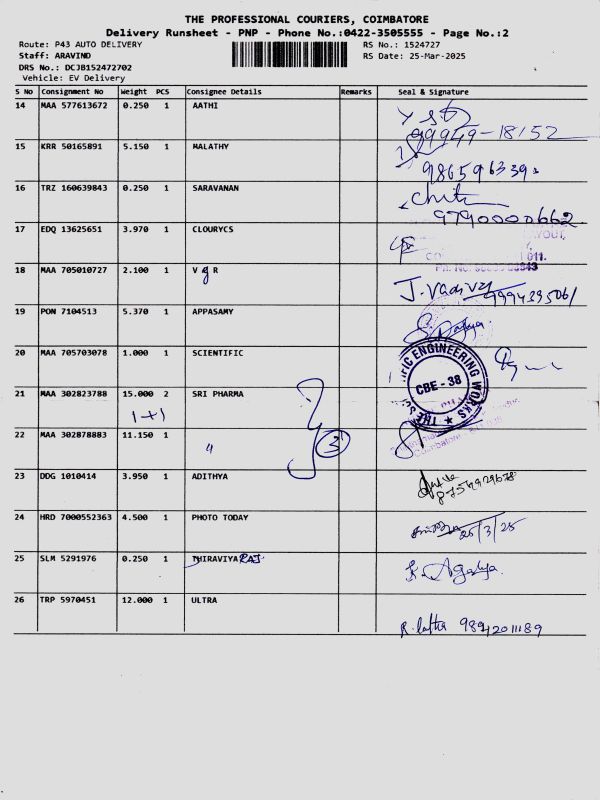 THE PROFESSIONAL COURIERS, COIMBATORE
Delivery Runsheet - PNP - Phone No.:0422-3505555 - Page No.:2
Route: P43 AUTO DELIVERY
RS No.: 1524727
Staff: ARAVIND
RS Date: 25-Mar-2025
DRS No.: DCJB152472702
Vehicle: EV Delivery
S No Consignment No Weight PCS Consignee Details Remarks Seal & Signature
14 MAA 577613672 0.250 1 AATHI
99949-18152
15 KRR 50165891 5.150 1 MALATHY
16 TRZ 160639843 0.250 1 SARAVANAN
9790000662
17 EDQ 13625651 3.970 1 CLOURYCS
18 MAA 705010727 2.100 1 V g R
19 PON 7104513 5.370 1 APPASAMY
20 MAA 705703078 1.000 1 SCIENTIFIC
THE SCIENTIFIC ENGINEERING WORKS
CBE - 38
21 MAA 302823788 15.000 2 SRI PHARMA
1+1
22 MAA 302878883 11.150 1 "
3
23 DDG 1010414 3.950 1 ADITHYA
24 HRD 7000552363 4.500 1 PHOTO TODAY
25/3/25
25 SLM 5291976 0.250 1 THIRAVIYA RAJ
26 TRP 5970451 12.000 1 ULTRA